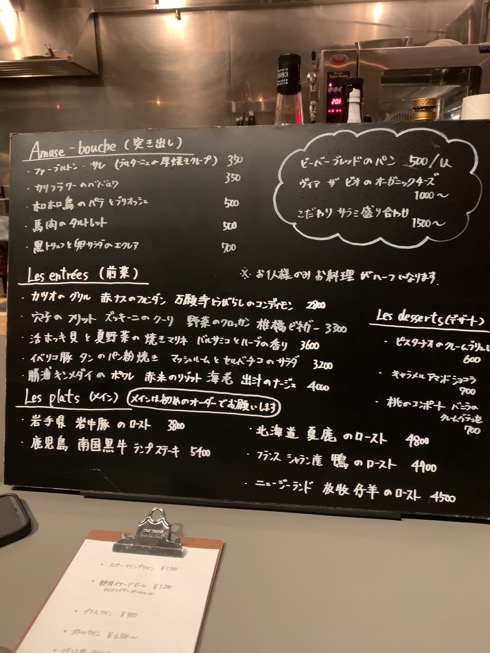 Amuse-bouche (突き出し)
・ファーブルトン サレ (ブルターニュの厚焼きクレープ) 350
・カリフラワーのババロワ 350
・ホロホロ鳥のパテとブリオッシュ 500
・馬肉のタルトレット 500
・黒トリュフと卵サラダのエクレア 700
ビーバーブレッドのパン 500/1人
ヴィア ザ ビオのオーガニックチーズ
1000〜
こだわり サラミ盛り合わせ
1500〜
Les entrées (前菜)
※お1人様のみお料理がハーフになります
・カツオのグリル 赤ナスのフォンダン 万願寺とうがらしのコンディモン 2800
・穴子のフリット ズッキーニのクーリ 野菜のクロッカン 椎橋ビネガー 3300
・活ホッキ貝と夏野菜の焼きマリネ バルサミコとハーブの香り 3600
・イベリコ豚 タンのパン粉焼き マッシュルームとセルバチコのサラダ 3200
・勝浦キンメダイのポワレ 赤米のリゾット 海老出汁のナージュ 4000
Les desserts (デザート)
・ピスタチオのクレームブリュレ
600
・キャラメル アマンド ショコラ
700
・桃のコンポート バニラの
クレームグラッセ
700
Les plats (メイン) メインは初めのオーダーでお願いします
・岩手県 岩中豚のロースト 3800
・鹿児島 南国黒牛 ランプステーキ 5400
・北海道 夏鹿のロースト 4800
・フランス シャラン産 鴨のロースト 4900
・ニュージーランド 放牧仔羊のロースト 4500
・スパークリングワイン
・グラスワイン
・ボトルワイン